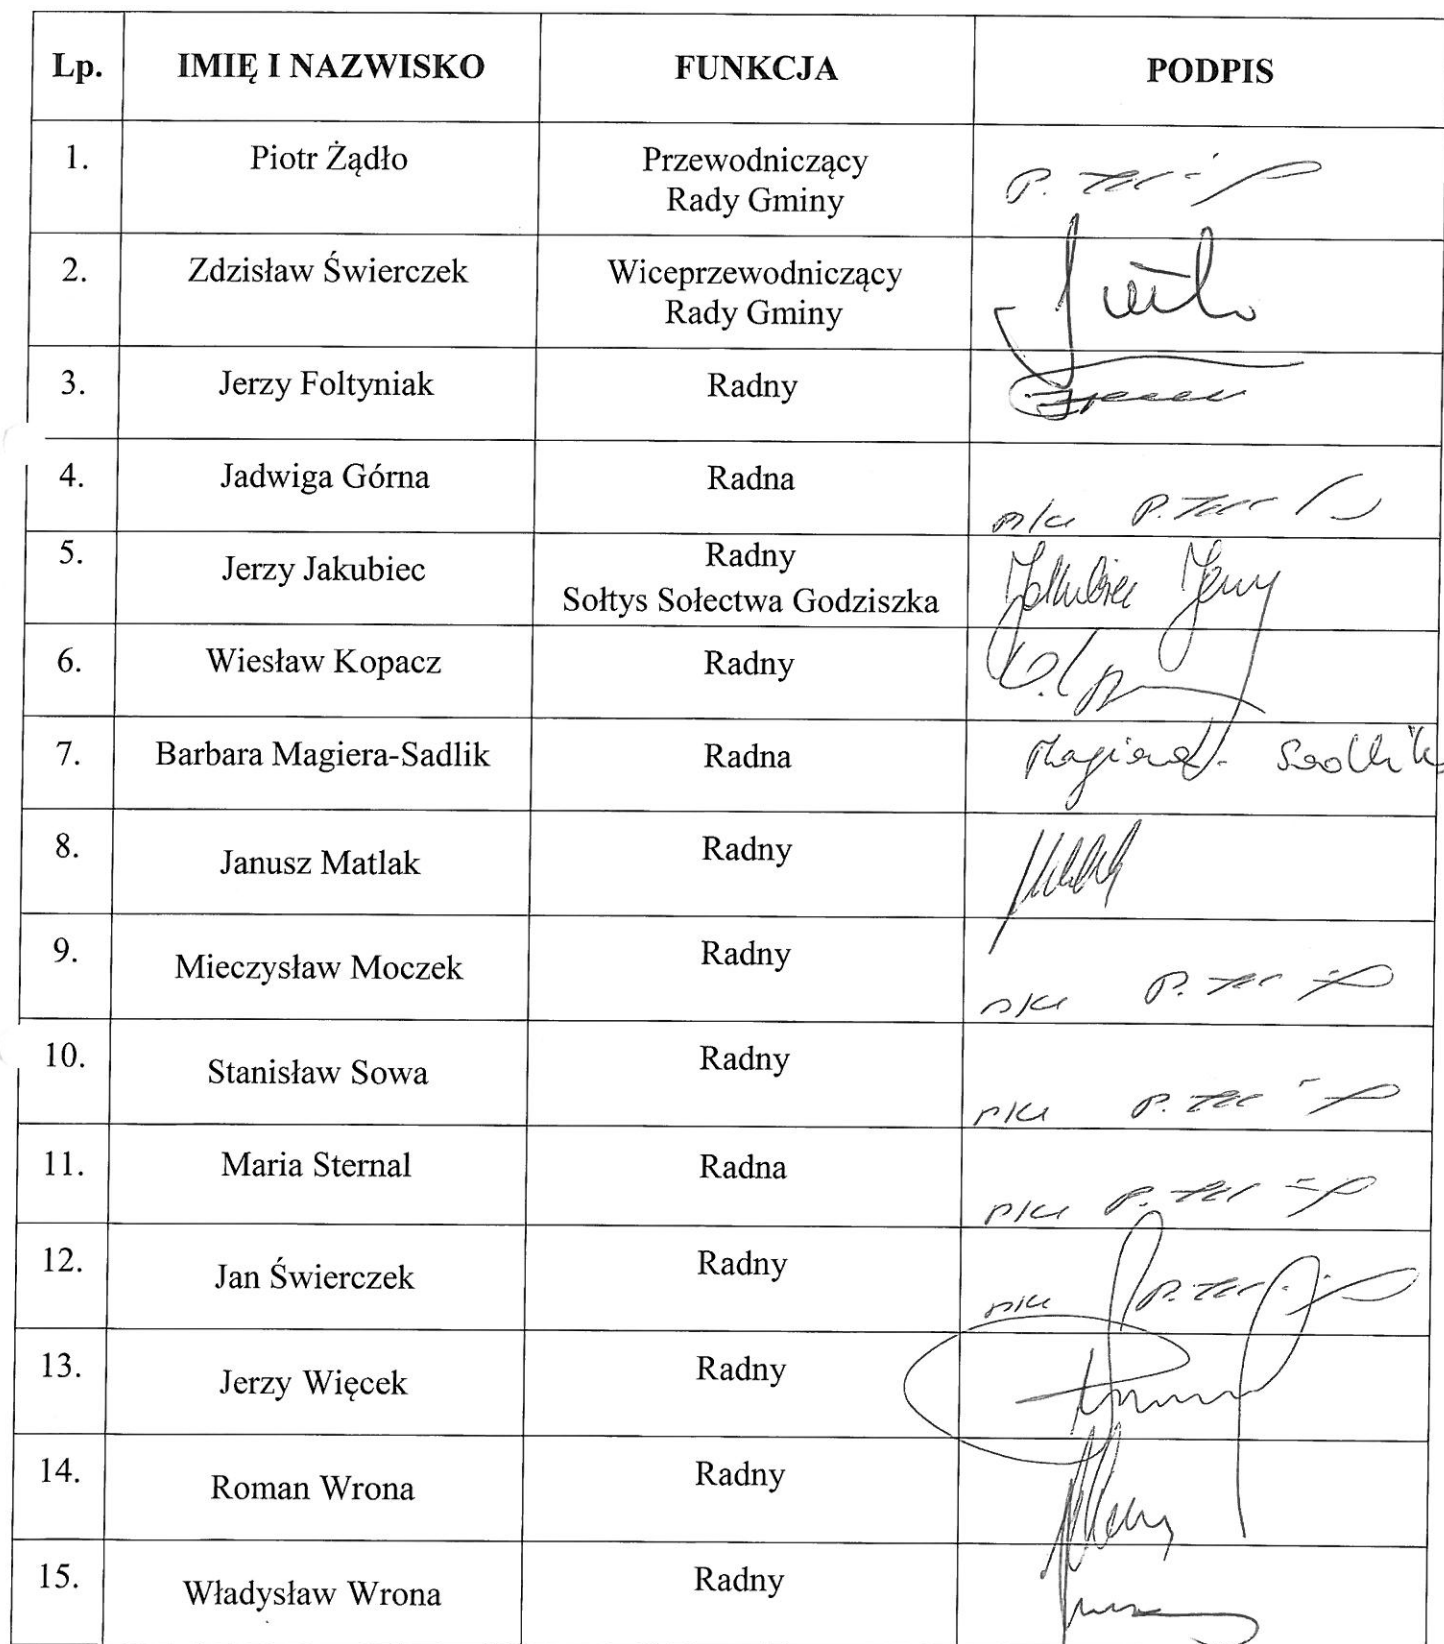 Lp. IMIĘ I NAZWISKO FUNKCJA PODPIS
1. Piotr Żądło Przewodniczący
Rady Gminy
2. Zdzisław Świerczek Wiceprzewodniczący
Rady Gminy
3. Jerzy Foltyniak Radny
4. Jadwiga Górna Radna
5. Jerzy Jakubiec Radny
Sołtys Sołectwa Godziszka
Jakubiec Jerzy
6. Wiesław Kopacz Radny
7. Barbara Magiera-Sadlik Radna Magiera-Sadlik
8. Janusz Matlak Radny
9. Mieczysław Moczek Radny
10. Stanisław Sowa Radny
11. Maria Sternal Radna
12. Jan Świerczek Radny
13. Jerzy Więcek Radny
14. Roman Wrona Radny
15. Władysław Wrona Radny